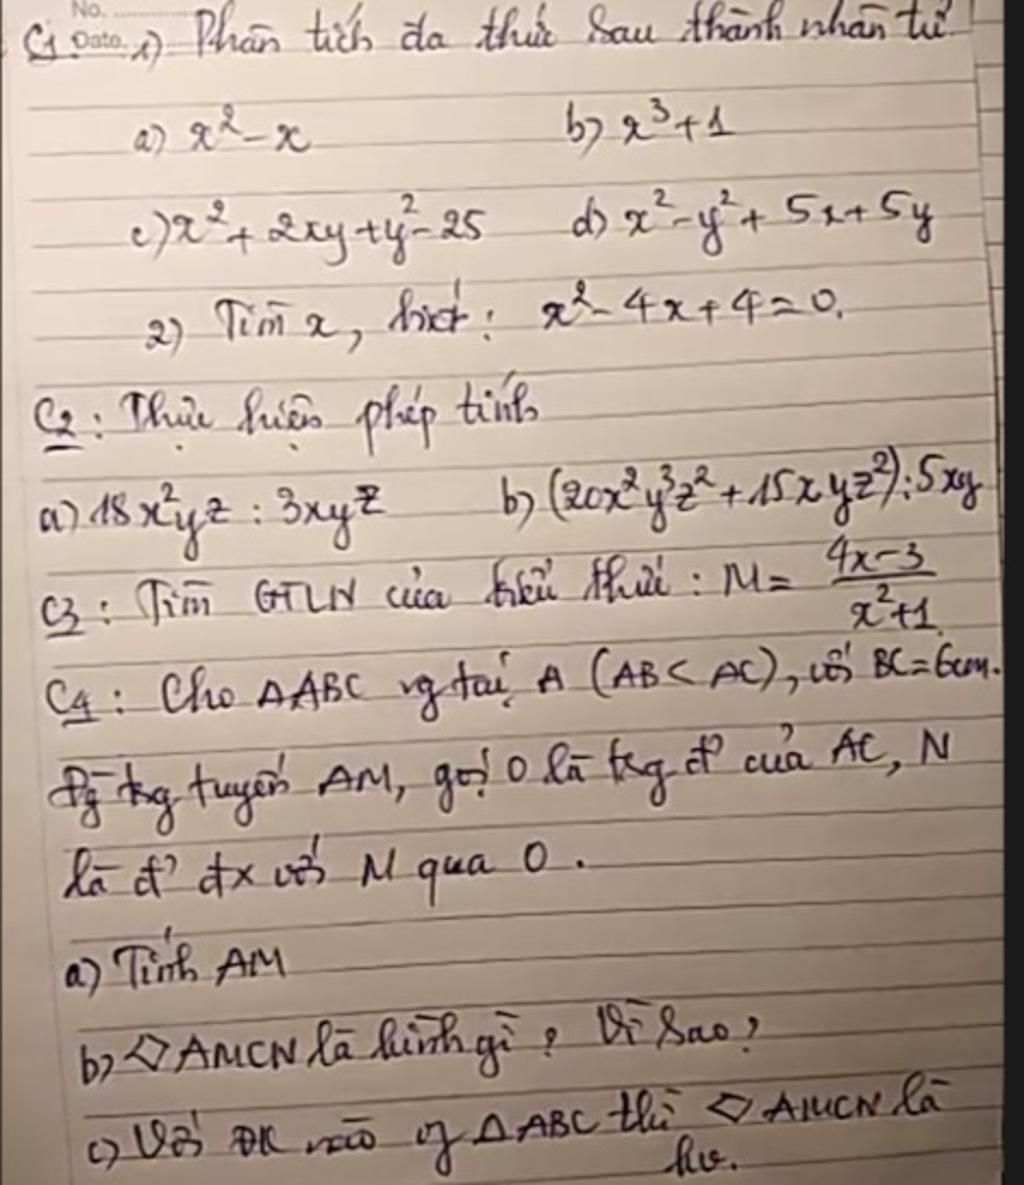 No.
Date.
C1. 1) Phân tích đa thức sau thành nhân tử
a) x² - x b) x³ + 1
c) x² + 2xy + y² - 25 d) x² - y² + 5x + 5y
2) Tìm x, biết: x² - 4x + 4 = 0.
C2: Thực hiện phép tính
a) 18x²yz : 3xyz b) (20x²y³z² + 15xyz²) : 5xy
C3: Tìm GTLN của biểu thức: M = (4x-3)/(x²+1)
C4: Cho ΔABC vg tại A (AB < AC), với BC = 6cm.
Đg trg tuyến AM, gọi O là trg đ' của AC, N
là đ' đx với M qua O.
a) Tính AM
b) ▱AMCN là hình gì? Vì sao?
c) Với ĐK nào ΔABC thì ▱AMCN là
hv.